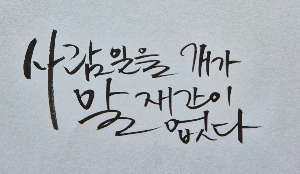 사람일을 개가
알 재간이
없다